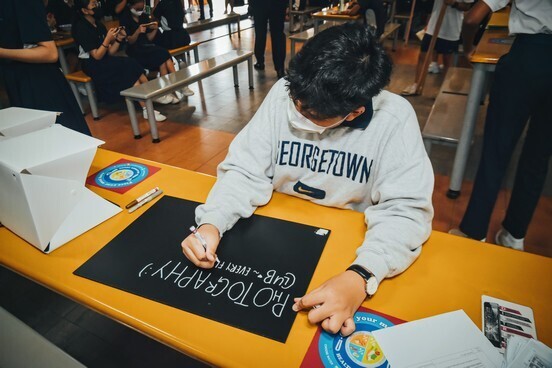 GEORGETOWN
PHOTOGRAPHY :)
CLUB
EVERY F
your m